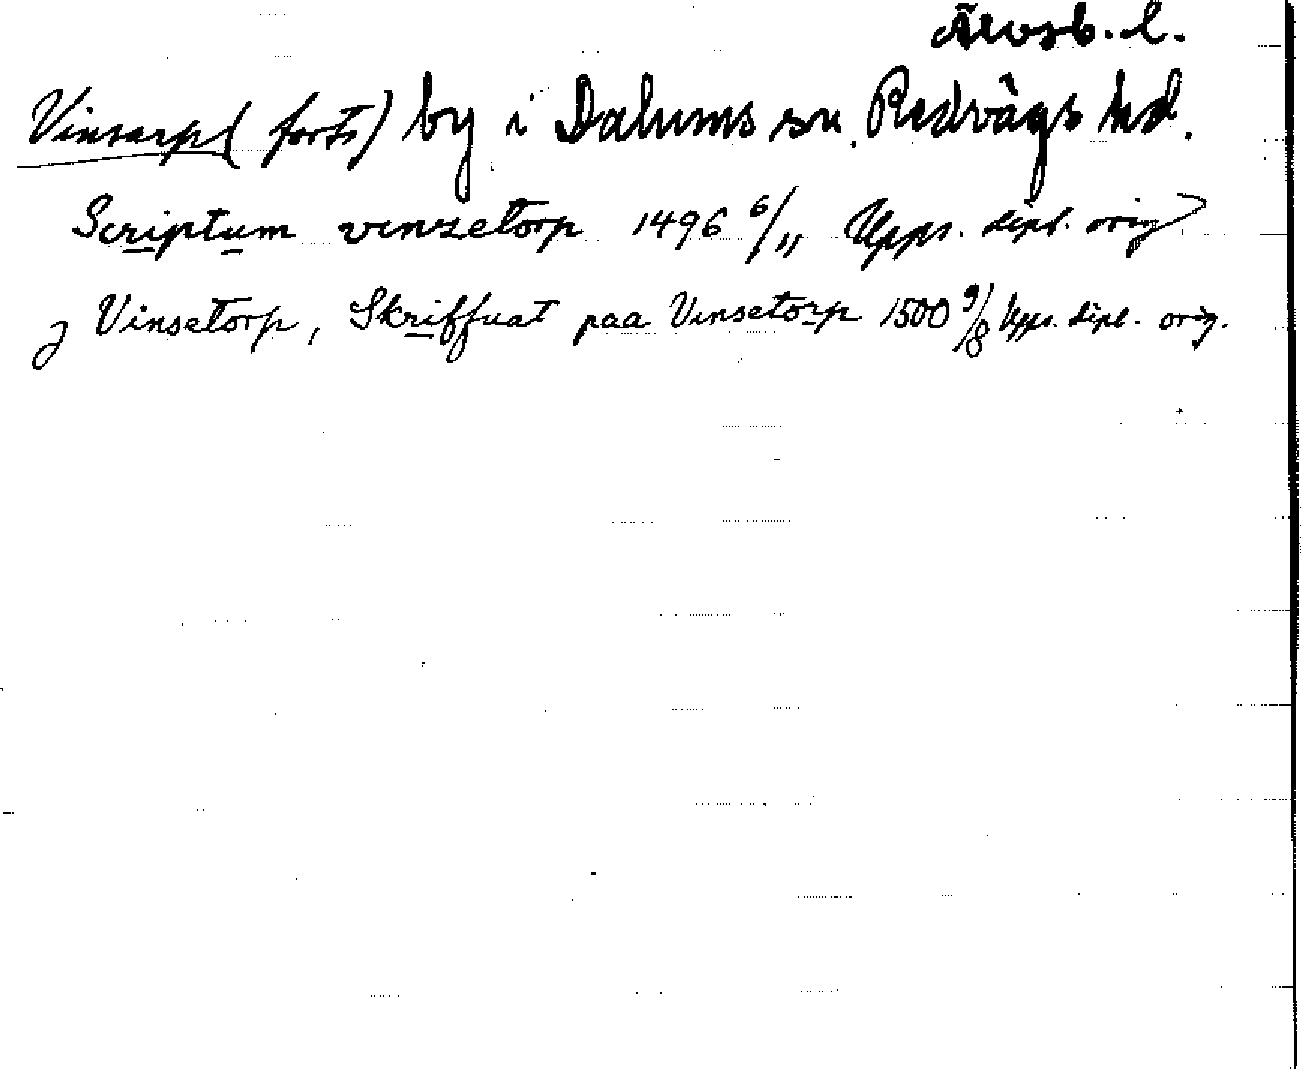 Älvsb. l.
Vinsarp (forts) by i Dalums sn. Redvägs hd.
Scriptum vinzetorp 1496 6/11 Upps. dipl. orig
j Vinsetorp, Skriffuat paa Vinsetorp 1500 9/8 Upps. dipl. orig.